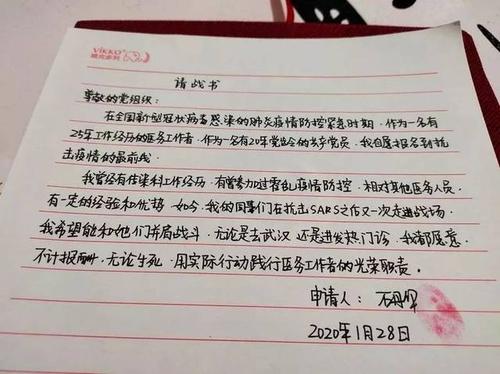 ViKKO
请战书
尊敬的党组织：
在全国新型冠状病毒感染的肺炎疫情防控紧急时期，作为一名有
25年工作经历的医务工作者，作为一名有20年党龄的共产党员，我自愿报名到抗
击疫情的最前线。
我曾经有传染科工作经历，有曾参加过霍乱疫情防控，相对其他医务人员，
有一定的经验和优势。如今，我的同事们在抗击SARS之后又一次走进战场，
我希望能和他们并肩战斗，无论是去武汉还是进发热门诊，我都愿意，
不计报酬，无论生死，用实际行动践行医务工作者的光荣职责。
申请人：石丹
2020年1月28日